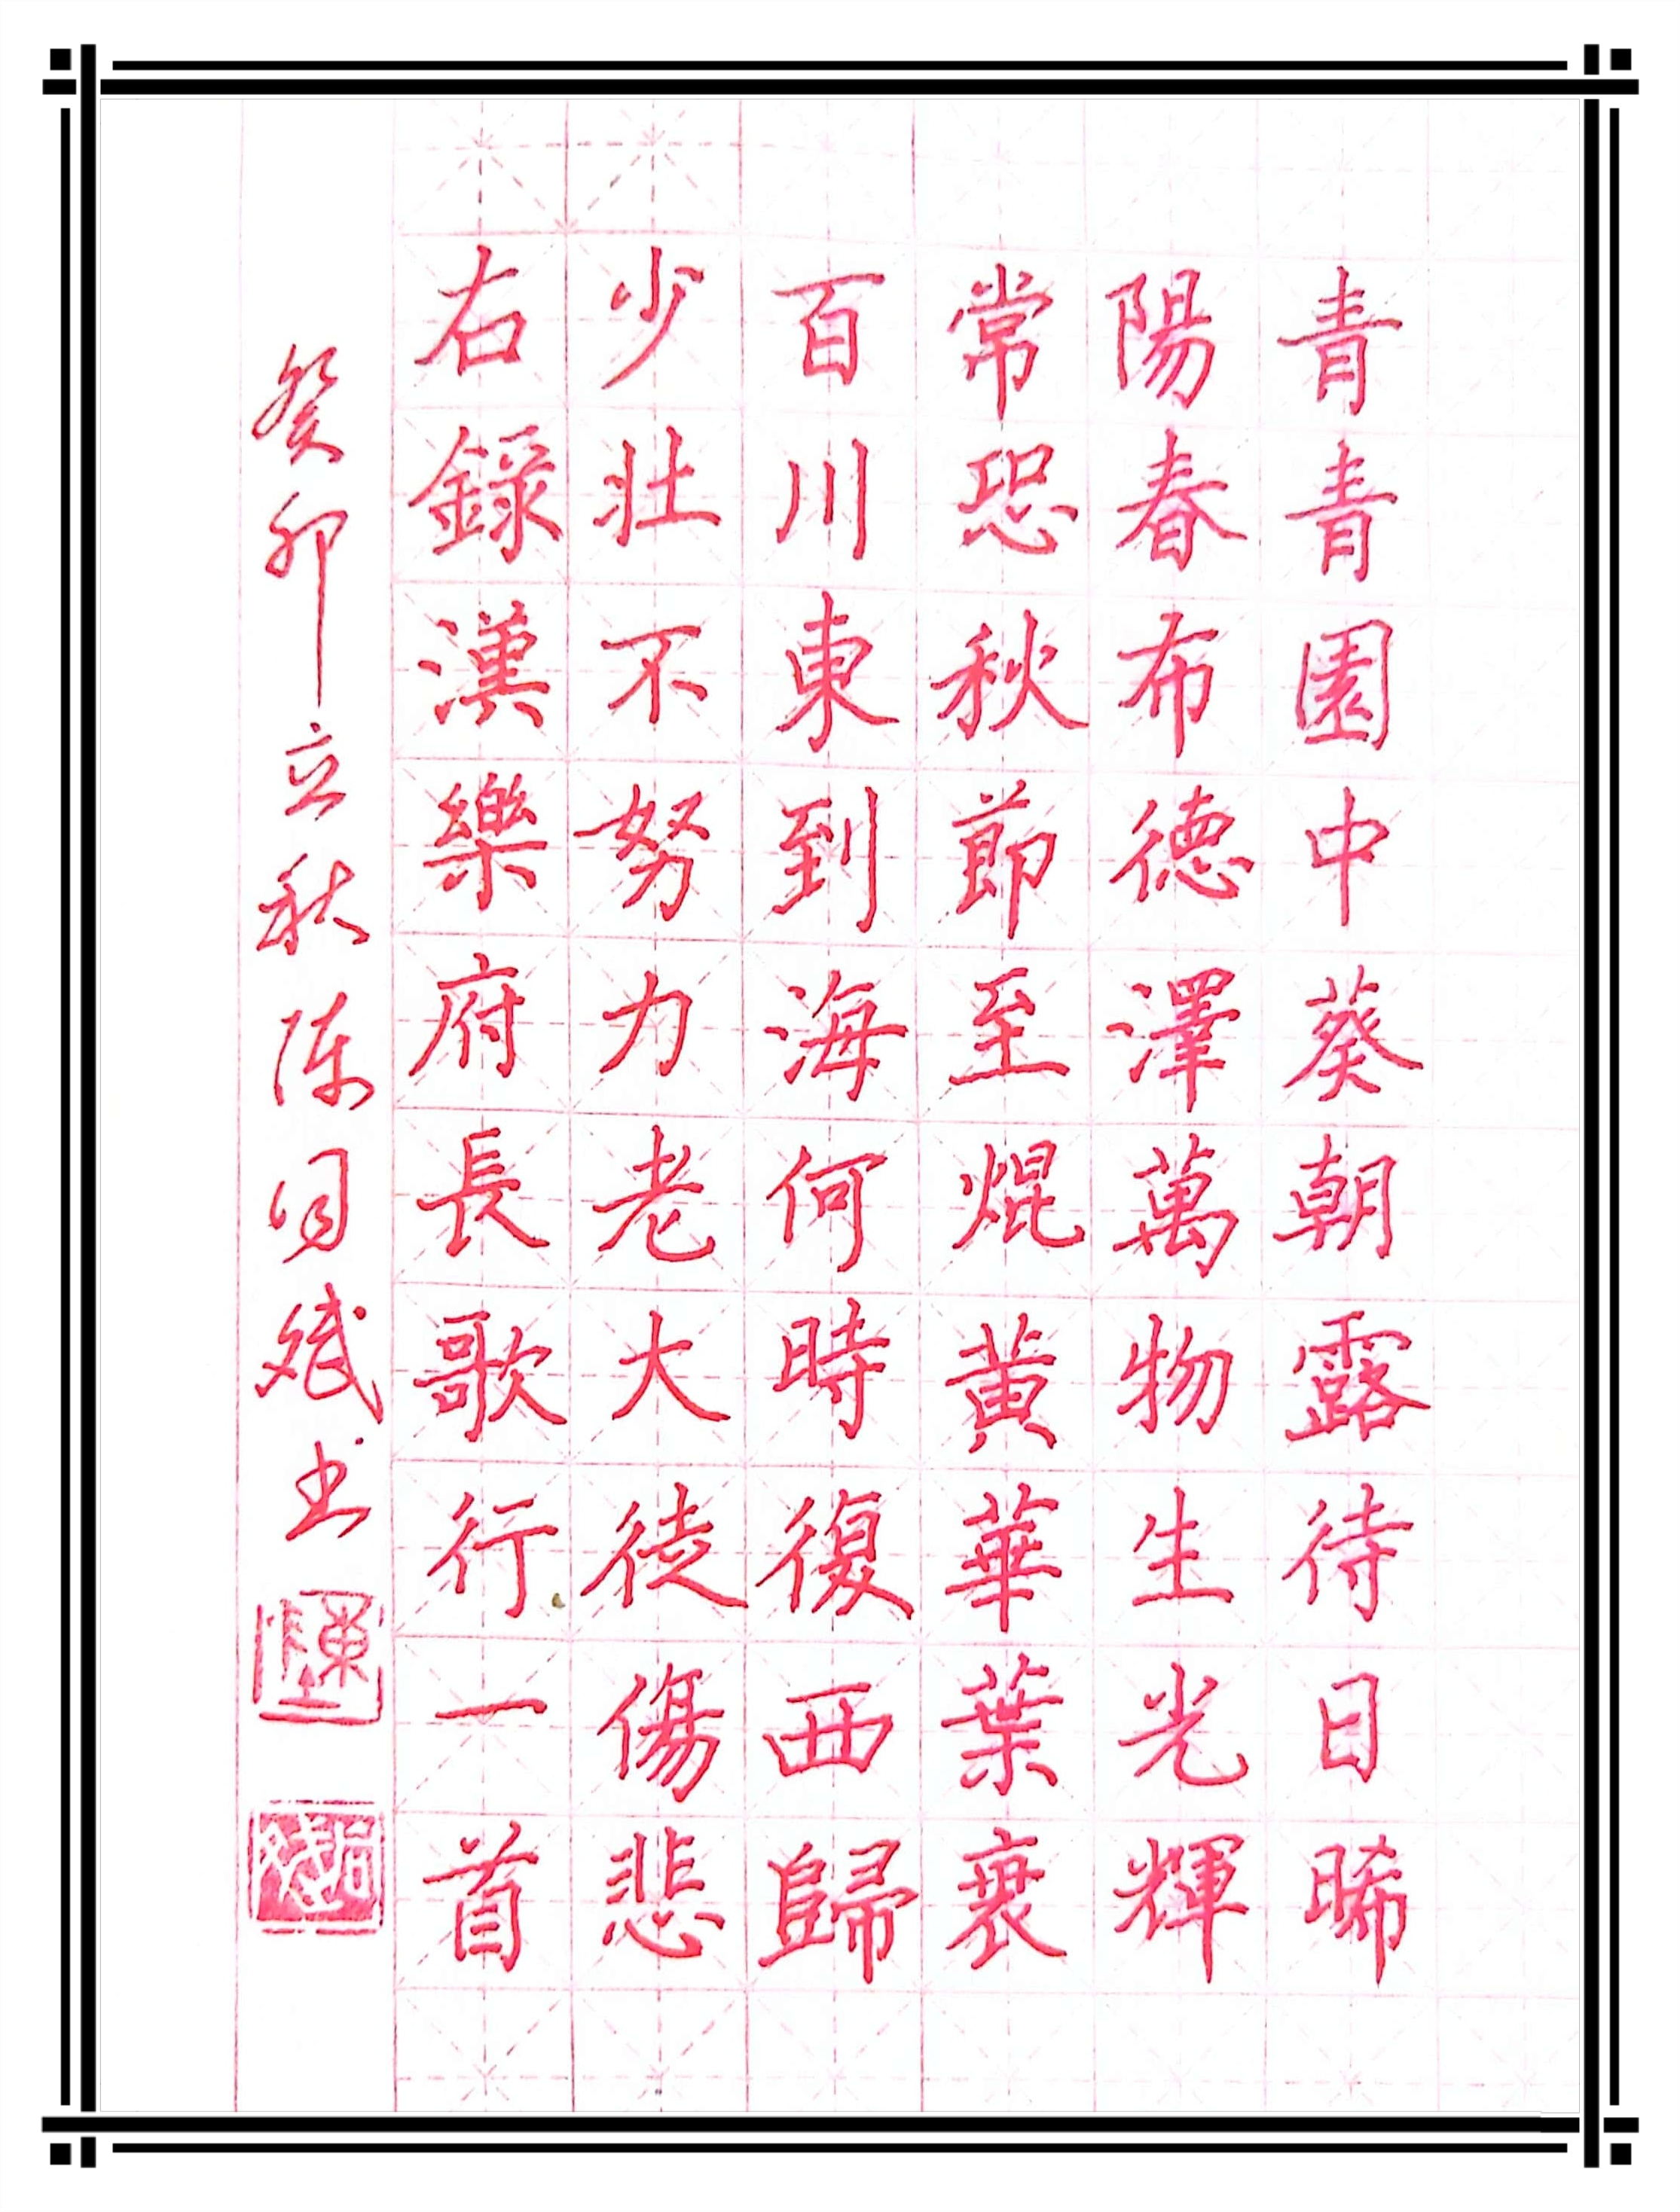 青青園中葵朝露待日晞
陽春布德澤萬物生光輝
常恐秋節至焜黃華葉衰
百川東到海何時復西歸
少壯不努力老大徒傷悲
右錄漢樂府長歌行一首
癸卯立秋陈同斌书